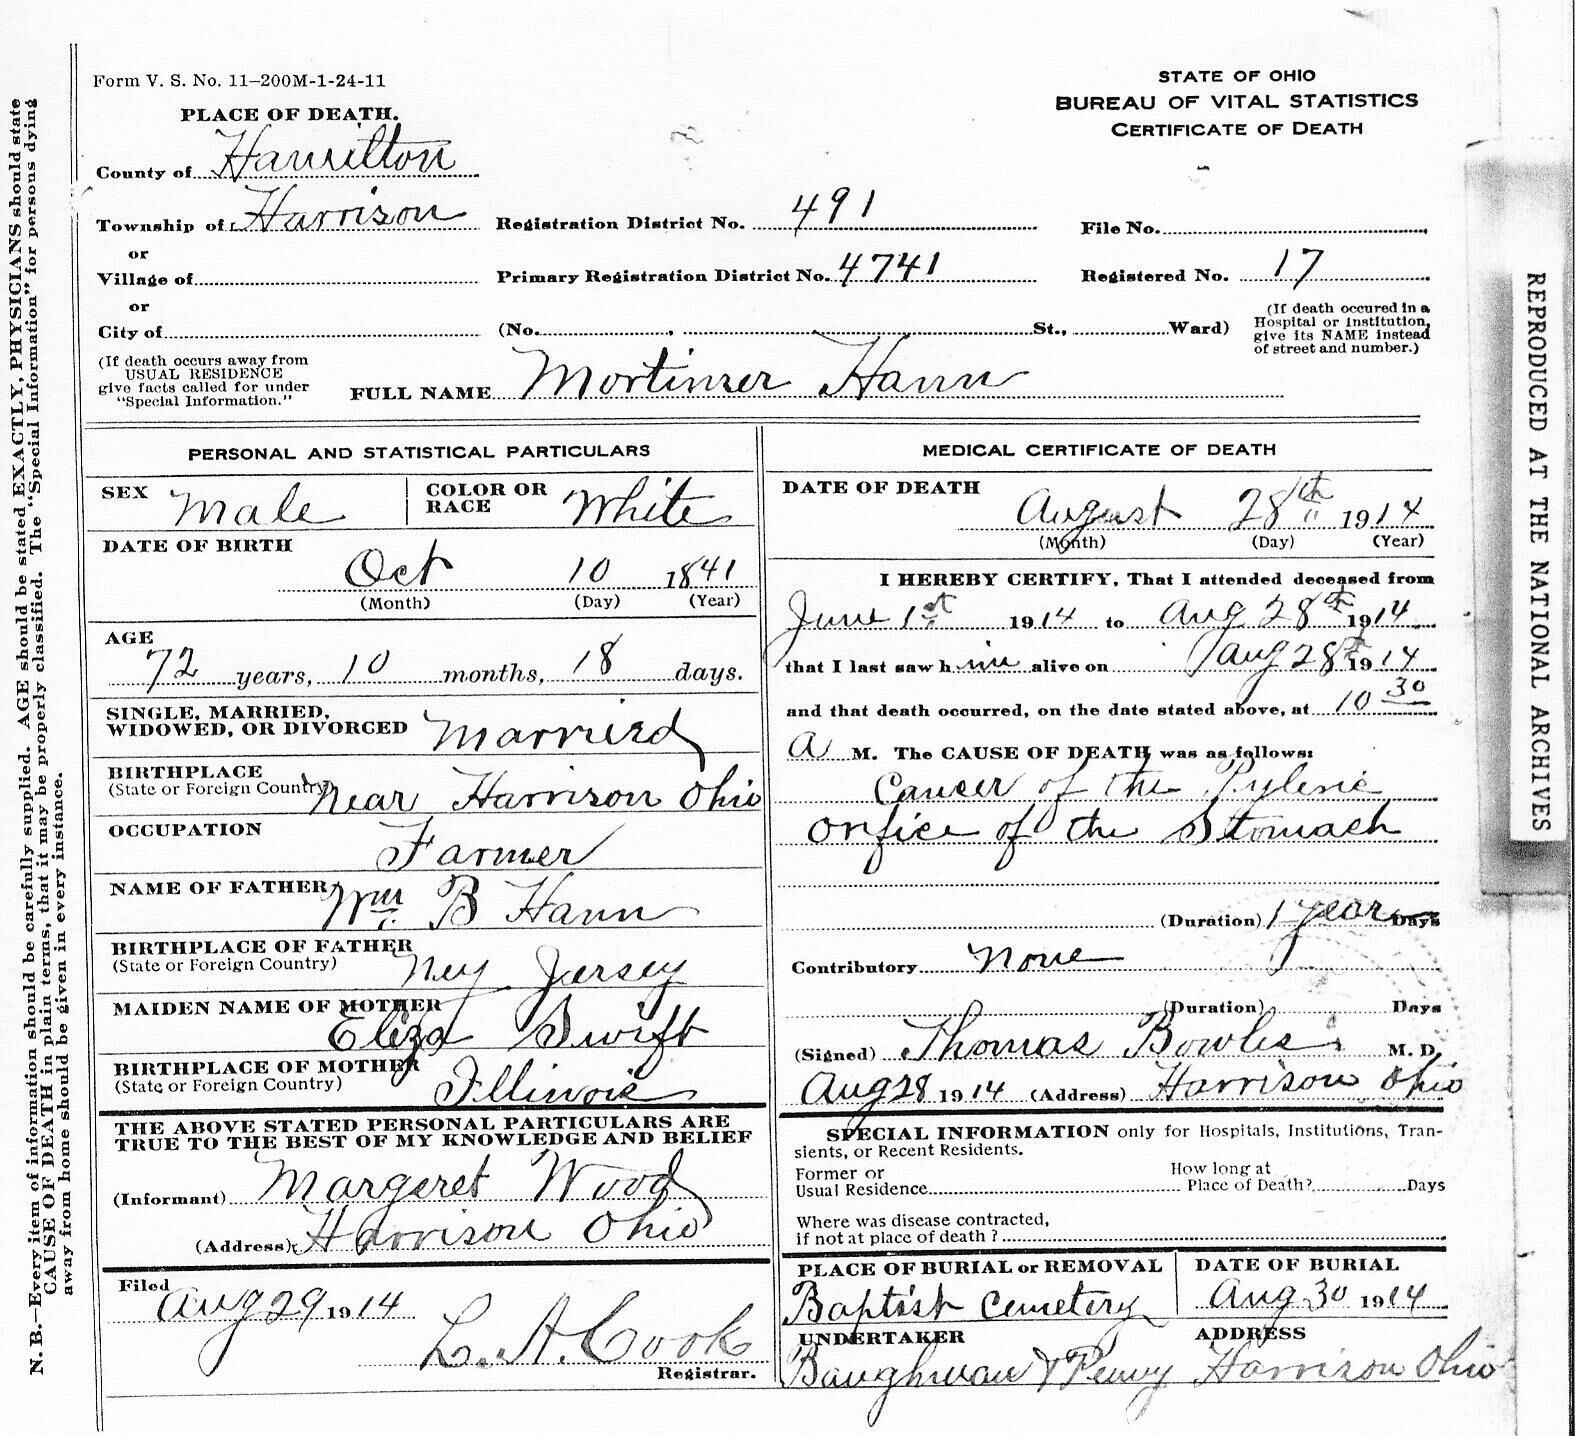 Form V. S. No. 11–200M-1-24-11
STATE OF OHIO
BUREAU OF VITAL STATISTICS
CERTIFICATE OF DEATH
PLACE OF DEATH.
County of Hamilton
Township of Harrison
Registration District No. 491
File No.
or
Village of
Primary Registration District No. 4741
Registered No. 17
or
City of
(No. , St., Ward)
(If death occured in a
Hospital or institution,
give its NAME instead
of street and number.)
(If death occurs away from
USUAL RESIDENCE
give facts called for under
"Special Information."
FULL NAME Mortimer Hann
PERSONAL AND STATISTICAL PARTICULARS
SEX Male
COLOR OR
RACE White
DATE OF BIRTH
Oct 10 1841
(Month) (Day) (Year)
AGE
72 years, 10 months, 18 days.
SINGLE, MARRIED,
WIDOWED, OR DIVORCED Married
BIRTHPLACE
(State or Foreign Country) Near Harrison Ohio
OCCUPATION
Farmer
NAME OF FATHER Wm B Hann
BIRTHPLACE OF FATHER
(State or Foreign Country) Ney Jersey
MAIDEN NAME OF MOTHER
Eliza Swift
BIRTHPLACE OF MOTHER
(State or Foreign Country) Illinois
THE ABOVE STATED PERSONAL PARTICULARS ARE
TRUE TO THE BEST OF MY KNOWLEDGE AND BELIEF
(Informant) Margaret Wood
(Address) Harrison Ohio
Filed Aug 29 1914
L. A. Cook
Registrar.
MEDICAL CERTIFICATE OF DEATH
DATE OF DEATH
August 28th 1914
(Month) (Day) (Year)
I HEREBY CERTIFY, That I attended deceased from
June 1st 1914 to Aug 28th 1914
that I last saw him alive on Aug 28th 1914
and that death occurred, on the date stated above, at 10 30
A M. The CAUSE OF DEATH was as follows:
Cancer of the Pyloric
Orifice of the Stomach
(Duration) 1 year Days
Contributory None
(Duration) Days
(Signed) Thomas Bowles M. D.
Aug 28 1914 (Address) Harrison Ohio
SPECIAL INFORMATION only for Hospitals, Institutions, Tran-
sients, or Recent Residents.
Former or
Usual Residence
How long at
Place of Death? Days
Where was disease contracted,
if not at place of death ?
PLACE OF BURIAL or REMOVAL
Baptist Cemetery
DATE OF BURIAL
Aug 30 1914
UNDERTAKER
Baughman & Penny
ADDRESS
Harrison Ohio
N. B.—Every item of information should be carefully supplied. AGE should be stated EXACTLY, PHYSICIANS should state
CAUSE OF DEATH in plain terms, that it may be properly classified. The "Special Information" for persons dying
away from home should be given in every instance.
REPRODUCED AT THE NATIONAL ARCHIVES